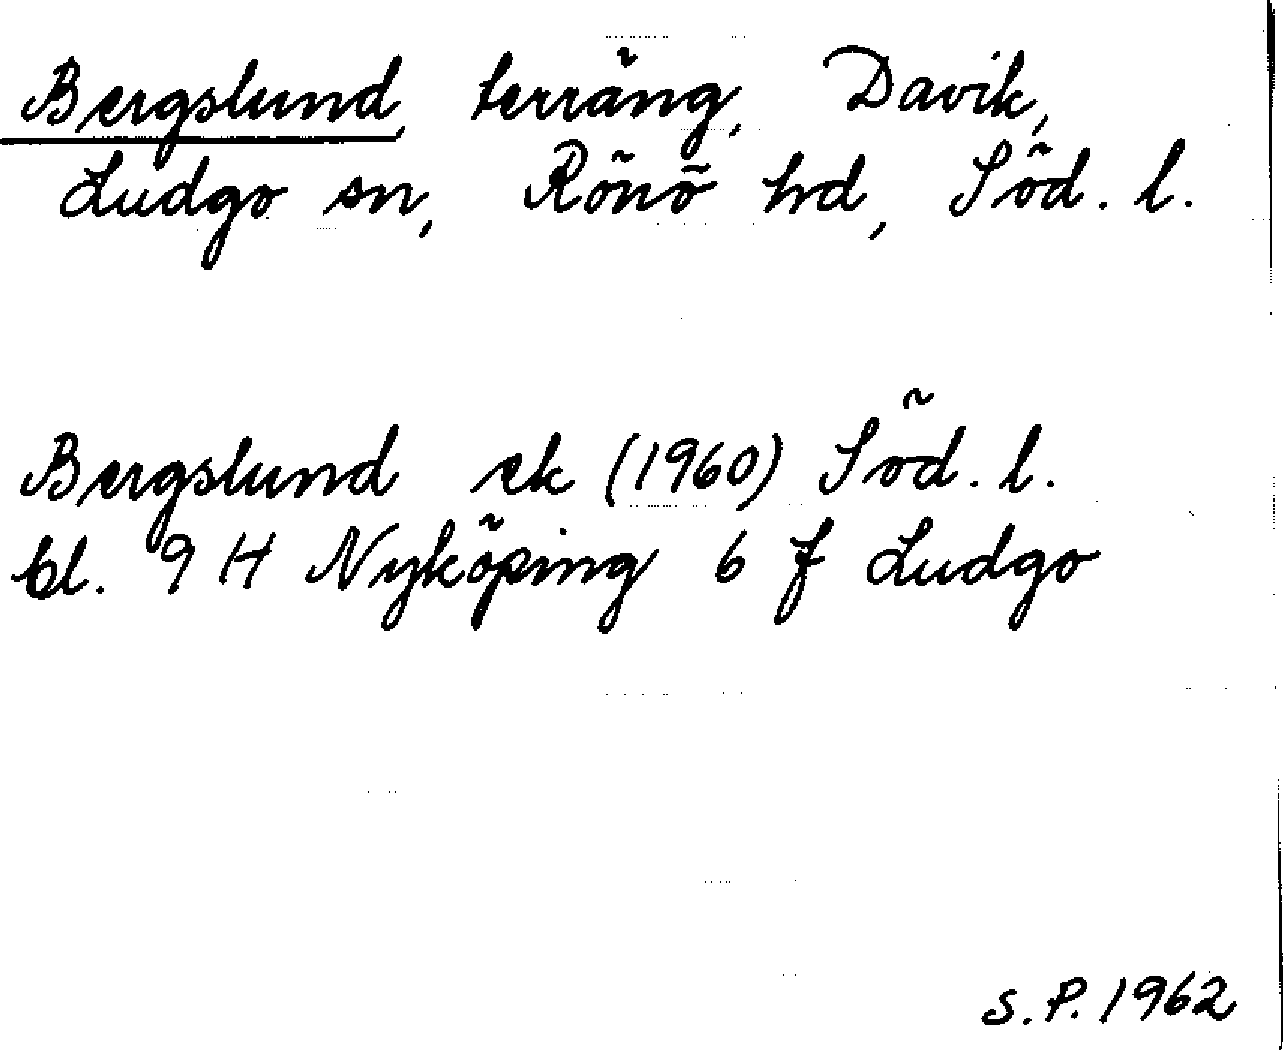 Bergslund, terräng, Davik,
Ludgo sn, Rönö hd, Söd. l.
Bergslund ek (1960) Söd. l.
bl. 9 H Nyköping 6 f Ludgo
S.P. 1962